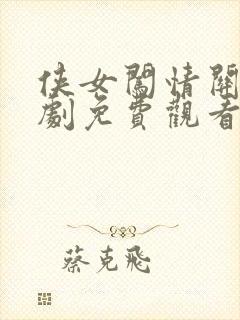 侠女闖情關
劇免費觀看
蔡克飛